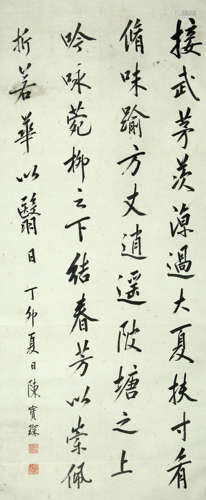 接武茅茨涼過大夏扶寸肴
脩味踰方丈逍遥陂塘之上
吟咏菀柳之下結春芳以崇佩
折若華以翳日 丁卯夏日陳寶琛